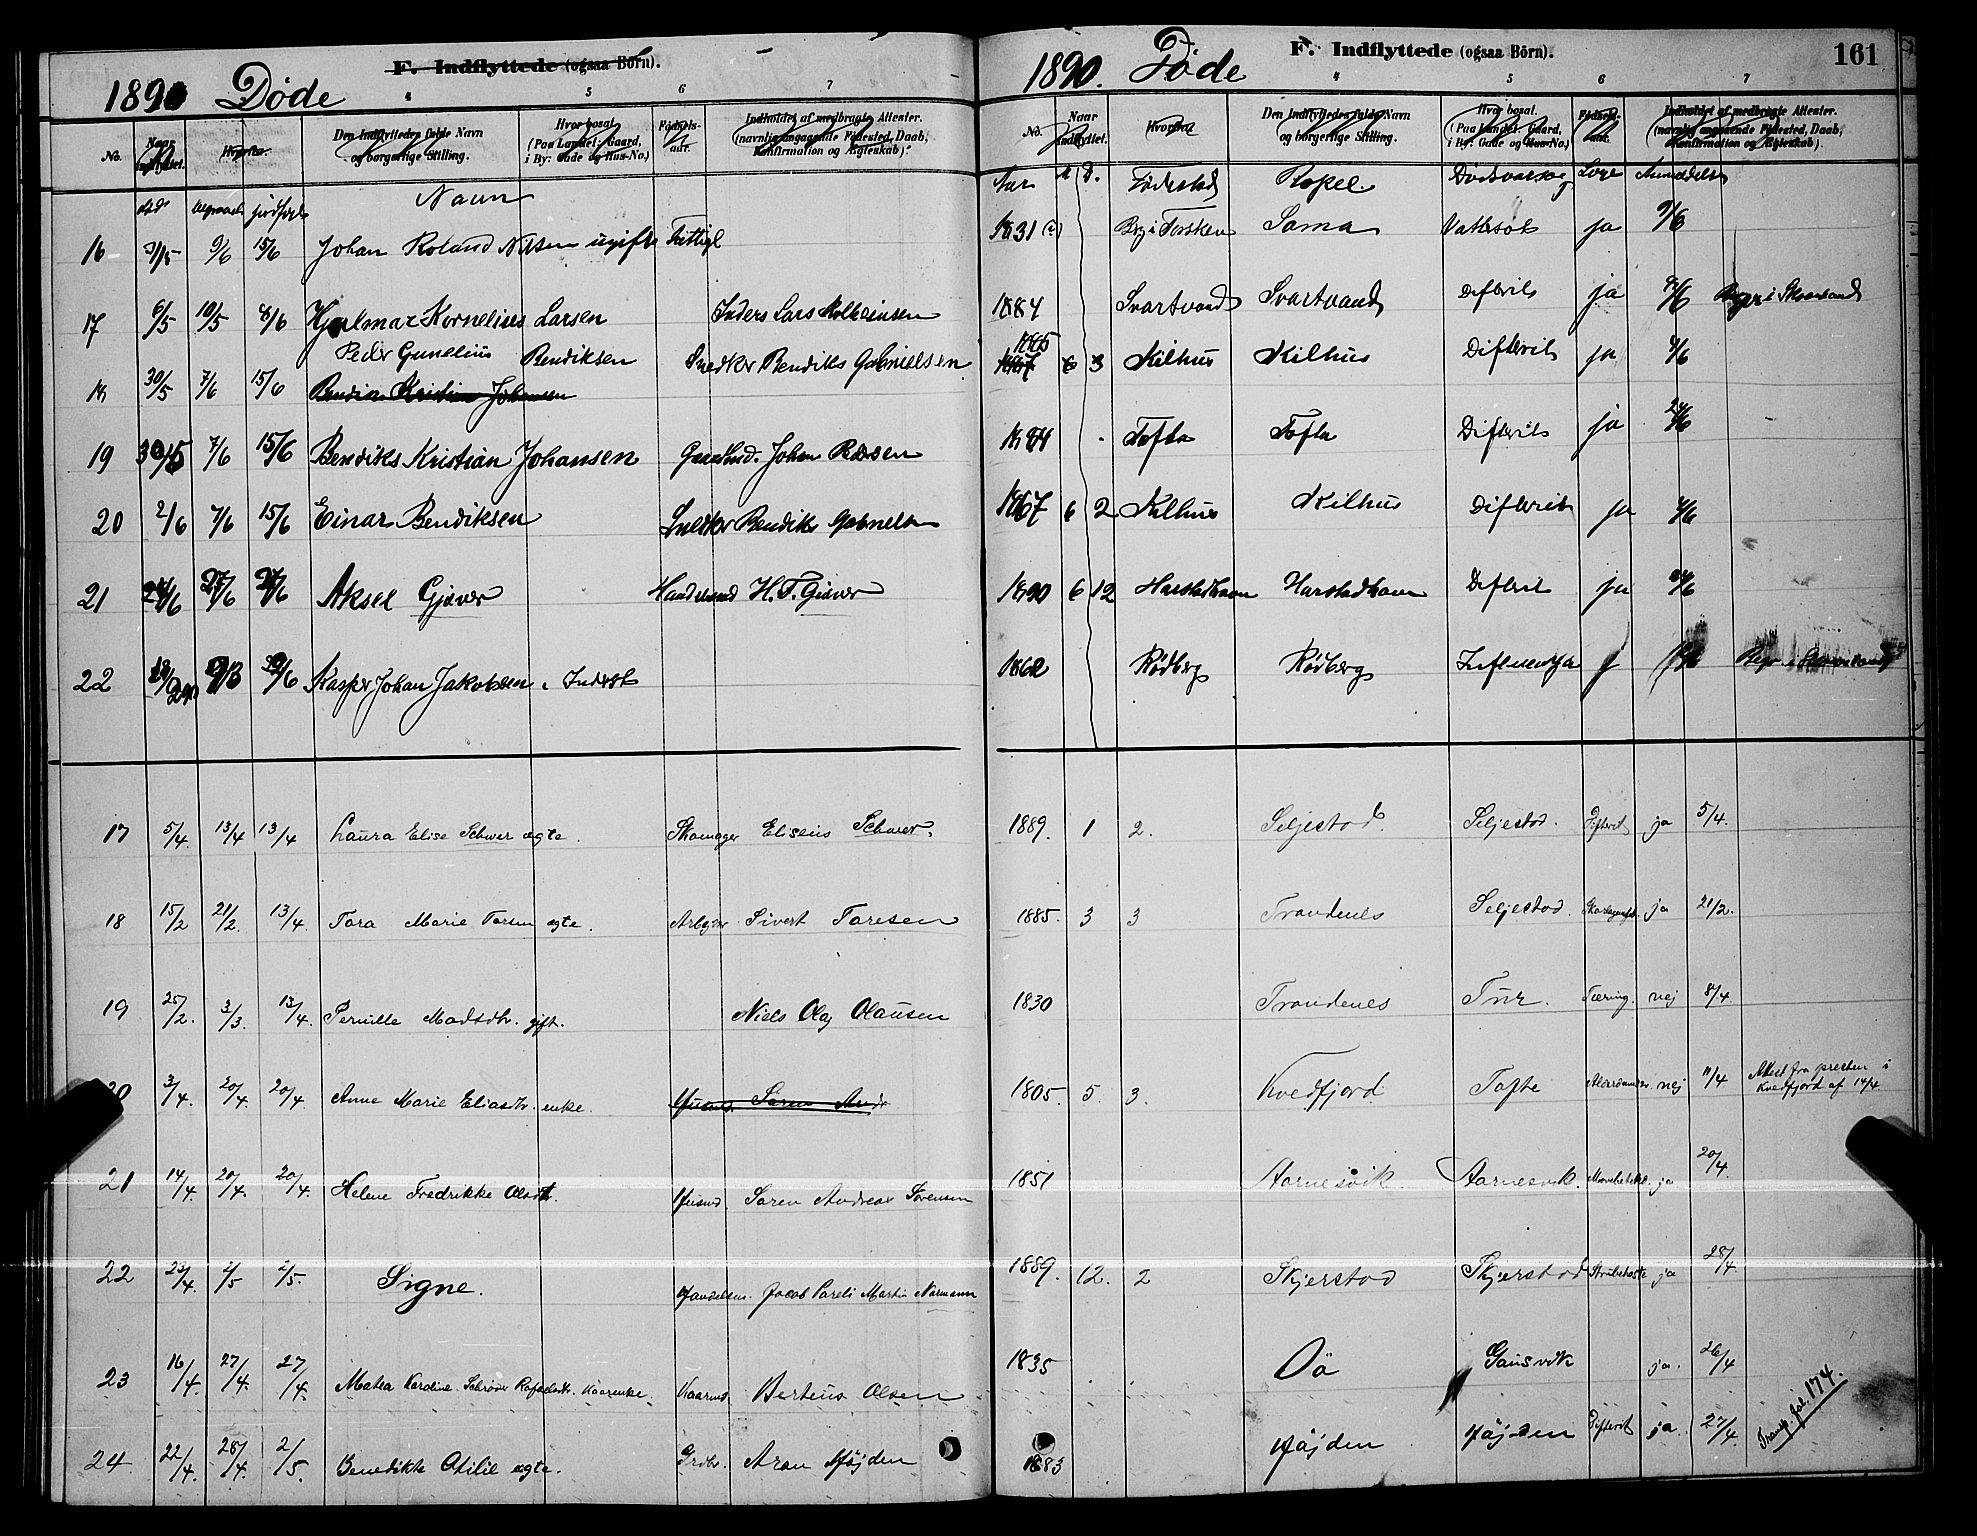 F. Indflyttede (ogsaa Börn).
1890 Döde
4 5 6 7
No. Naar indflyttet. Hvorfra. Den Indflyttedes fulde Navn og borgerlige Stilling. Hvor bosat. (Paa Landet: Gaard, i By: Gade og Hus-No.) Fødsels-aar. Indholdet af medbragte Attester. (navnlig angaaende Fødested, Daab, Konfirmation og Ægteskab).
død jordfæst Navn
16 9/6 15/6 Johan Roland Nilsen ugift Fattigl
17 6/5 10/5 8/6 Hjalmar Kornelius Larsen Inders Lars
Peder Gunelius Bendiksen Snedker Bendiks Gabrielsen
18 30/5 7/6 15/6 Bendix Kristian Johansen
19 30/5 7/6 15/6 Bendiks Kristian Johansen Johan
20 2/6 7/6 15/6 Einar Bendiksen Snedker Bendiks Gabriels
21 24/6 27/6 27/6 Aksel Gjæver Handelsmd H. F. Giæver
22 Kasper Johan Jakobsen, Inderst
17 5/4. 13/4 13/4 Laura Elise Schwer ægte. Skomager Eliseus Schwer.
18 15/2 21/2. 13/4. Tora Marie Torsen ægte. Arbejder Sivert Toresen
19 25/2. 3/3. 13/4. Pernille Madsdtr. gift. Niels Olaj Olausen
20 3/4. 20/4. 20/4. Anne Marie Eliasdtr. enke. Husmd. Søren Andr
21 14/4. 20/4. 20/4. Helene Fredrikke Olsdt. Husmd. Søren Andreas Sørensen
22 23/4. 2/5 2/5. Signe. Handelsm. Jacob Pareli Martin Normann
23 16/4. 27/4. 27/4. Matea Karoline Schrøder Rafaelsdtr. Kaarenke. Kaarmd. Berteus Olsen
24. 22/4. 28/4. 2/5. Benedikte Otilie ægte. Grdbr. Aron Højden
F. Indflyttede (ogsaa Börn).
161
1890. Døde
4 5 6 7
No. Naar indflyttet. Hvorfra Den Indflyttedes fulde Navn og borgerlige Stilling. Hvor bosat. (Paa Landet: Gaard, i By: Gade og Hus-No.) Fødsels-aar. Indholdet af medbragte Attester. (navnlig angaaende Fødested, Daab, Konfirmation og Ægteskab).
Aar M D. Fødested Bopel Dødsaarsag Læge Anmeldelse
1831 Berg i Torsken Sama Vattersot ja 9/6
1884 Svartvand Svartvand Difterit ja
1885
1867 6 3 Kilhus Kilhus Difterit ja
1884 Tofta Tofta Difterit ja
1867 6 2 Kilhus Kilhus Difterit ja
1890 6 12 Harstadhavn Harstadhavn Difterit ja
1862 Rødberg Rødberg Influentsa j
1889. 1 2. Seljestad. Seljestad. Difterit ja 5/4.
1885. 3 3 Trondenes Seljestad. ja 21/2.
1830 Trondenes Tur. Tæring. nej 8/4
1805. 5. 3. Kvedfjord Tofte Alderdom nej 11/4 Attest fra presten i
Kvedfjord af 14/4
1851 Aarnesvik. Aarnesvik. ja 20/4.
1889. 12. 2 Skjerstad Skjerstad Strubehoste ja 28/4
1835 Oä Gausvik ja. 26/4
1883 Højden Højden Difterit ja. 27/4.
Transp. fol. 174.